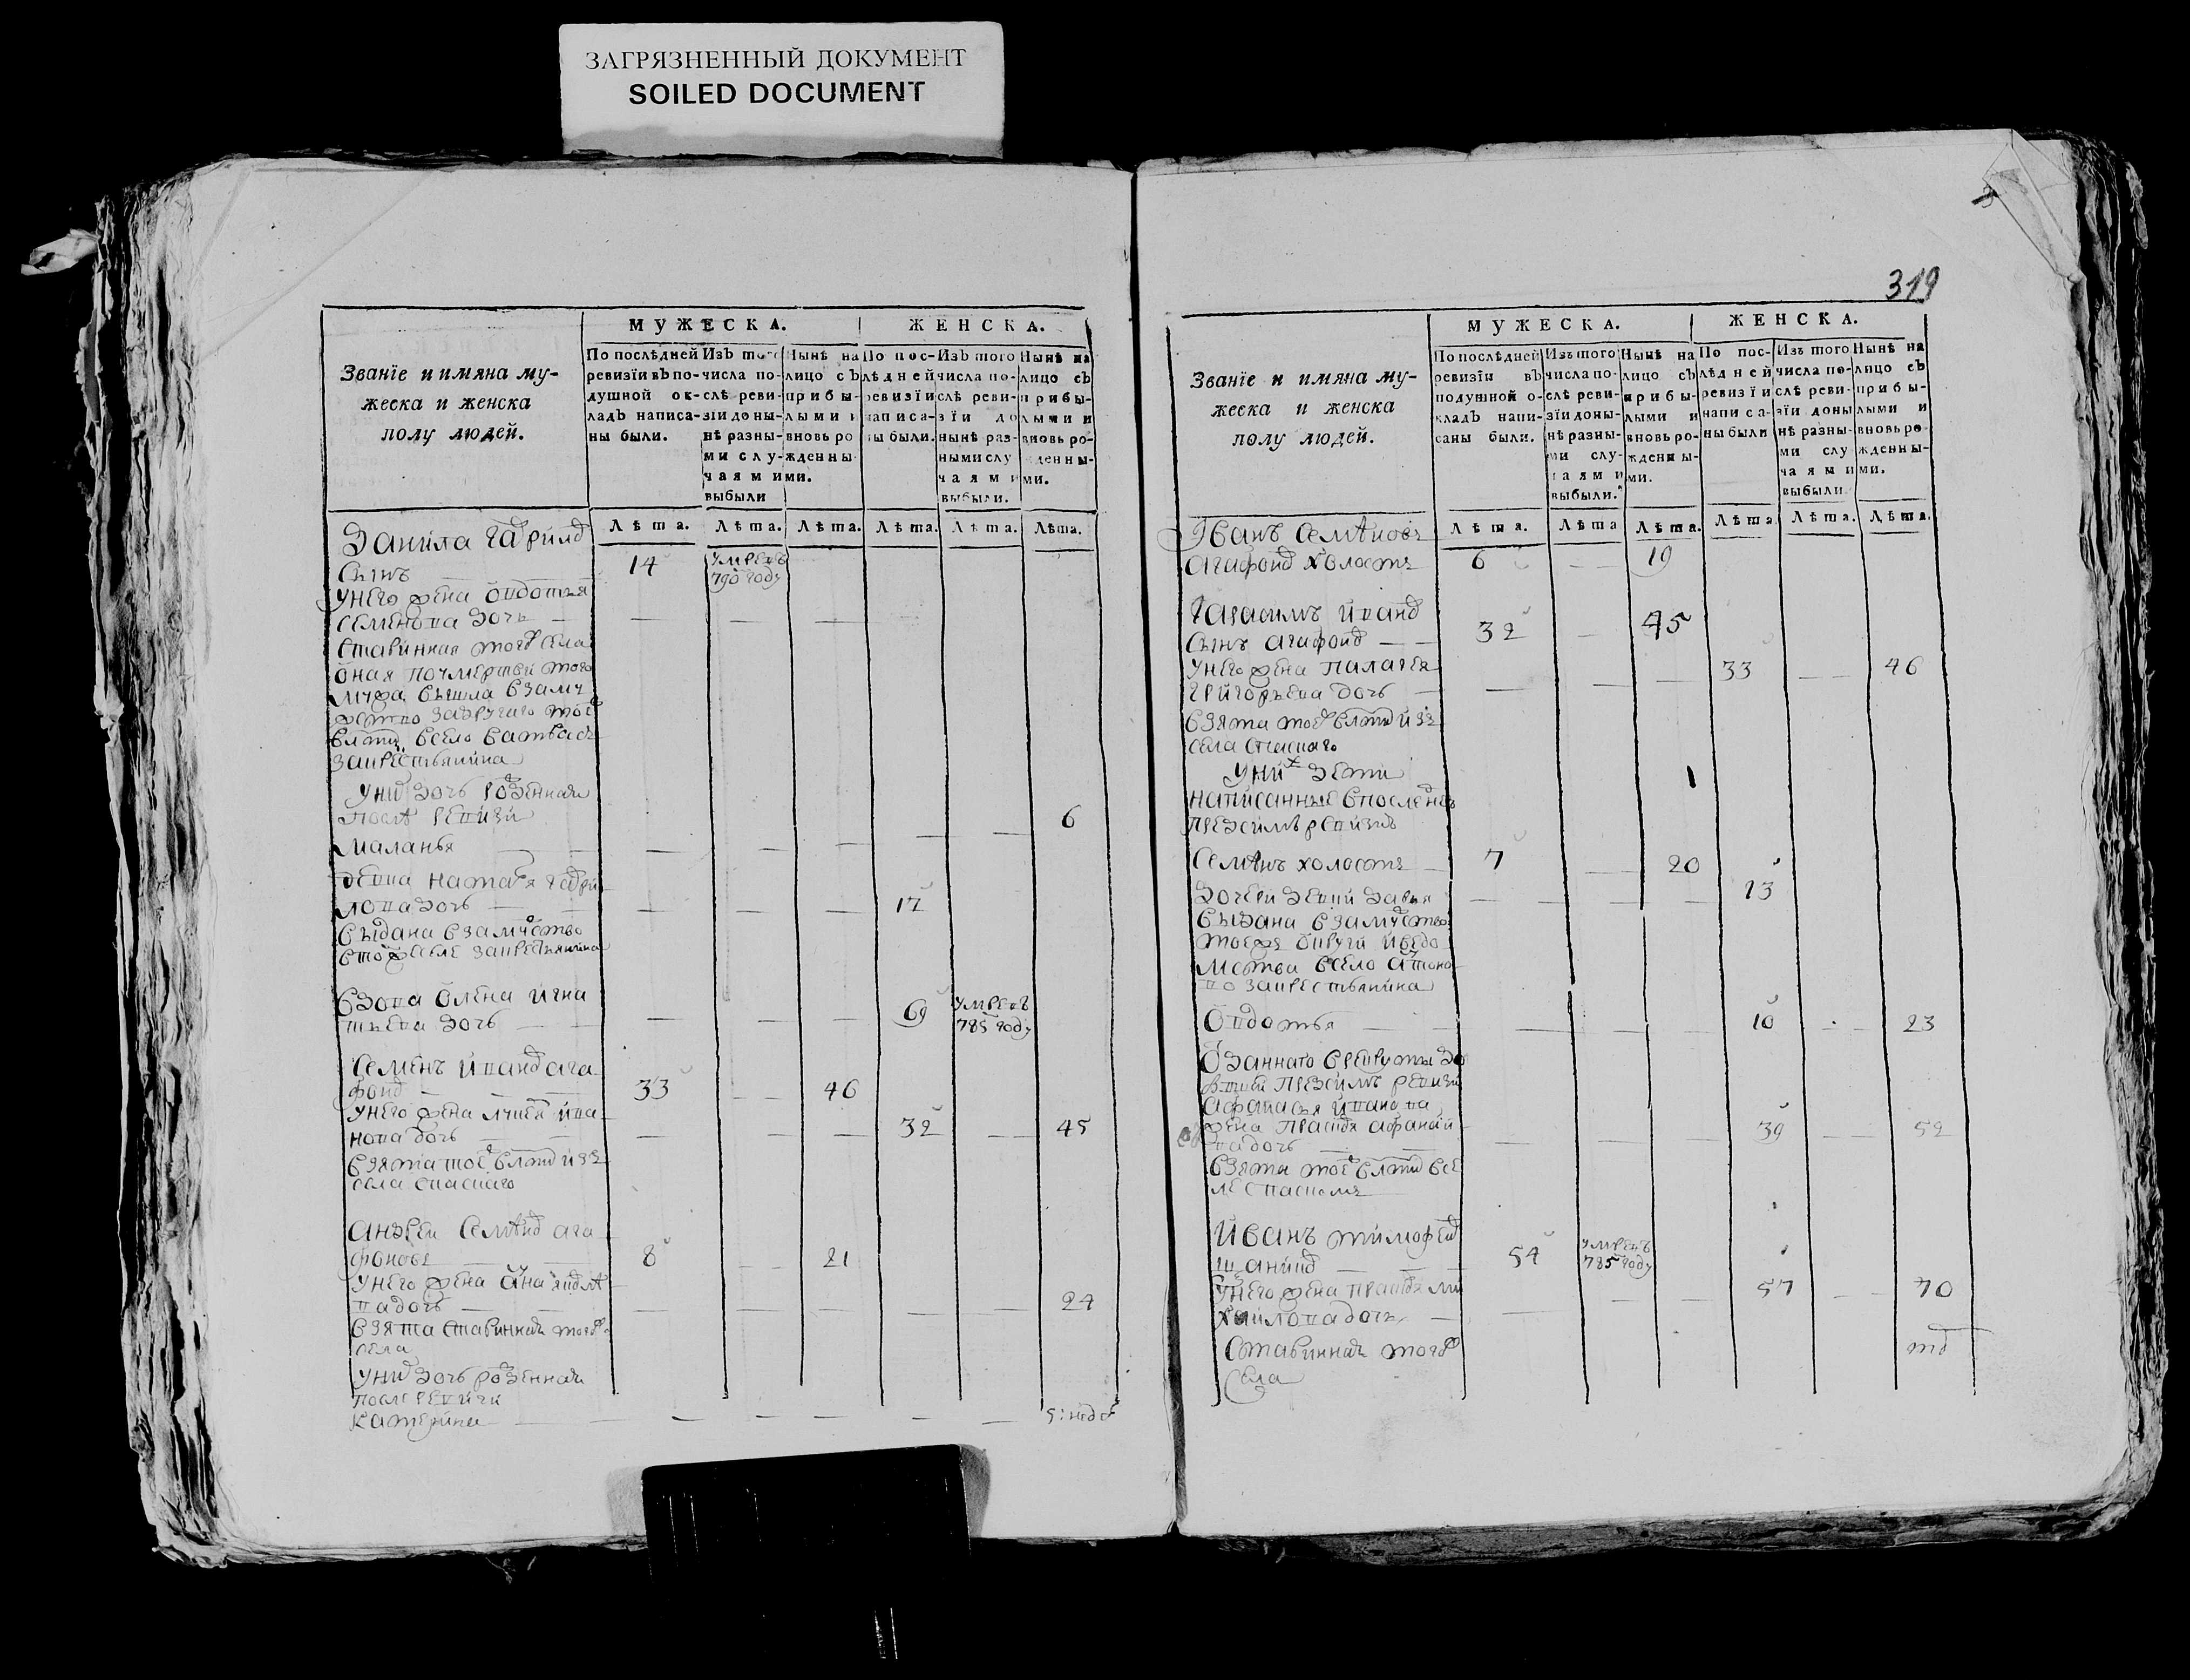 ЗАГРЯЗНЕННЫЙ ДОКУМЕНТ
SOILED DOCUMENT
МУЖЕСКА.
ЖЕНСКА.
Званїе и имяна му-
жеска и женска
полу людей.
По послѣдней
ревизїи въ по-
душной ок-
ладъ написа-
ны были.
Изъ того
числа по-
слѣ реви-
зїи до ны-
нѣ разны-
ми слу-
чаями
выбыли
Нынѣ на
лицо съ
прибы-
лыми и
вновь ро
жденны
ми.
По пос-
лѣдней
ревизїи
написа-
ны были.
Изъ того
числа по-
слѣ реви-
зїи до
нынѣ раз-
ными слу
чаями
выбыли.
Нынѣ на
лицо съ
прибы-
лыми и
вновь ро-
жденны-
ми.
Лѣта. Лѣта. Лѣта. Лѣта. Лѣта. Лѣта.
Данила гаврилов
сынъ 14 умренъ
790 году
у него жена овдотья
семенова дочь
старинная того села
оная по смертьи того
мужа вышла в замУ
жство за другаго той
вотчин в село
за крестьянина
у них дочь рожденная
после ревизи 6
маланья
девка наталя гаври
лова дочь 17
выдана в замужство
в том же селе за крестьянина
вдова олена игна
тьева дочь 69 умренъ
785 году
Семенъ иванов ага
фонов 33 46
у него жена лукея ива
нова дочь 32 45
взята той вотчин изъ
села спаскаго
андреи семѣнов ага
фоновъ 8 21
у него жена анна
ва дочь 24
взята старинная того
села
у них дочь рожденная
после ревизи
катерина 5: недел
319
МУЖЕСКА.
ЖЕНСКА.
Званїе и имяна му-
жеска и женска
полу людей.
По послѣдней
ревизїи въ
подушной о-
кладъ напи-
саны были.
Изъ того
числа по-
слѣ реви-
зїи до ны-
нѣ разны-
ми слу-
чаями
выбыли.
Нынѣ на
лицо съ
прибы-
лыми и
вновь ро-
жденны-
ми.
По пос-
лѣдней
ревизїи
написа-
ны были
Изъ того
числа по-
слѣ реви-
зїи до ны
нѣ разны-
ми слу
чаями
выбыли
Нынѣ на
лицо съ
прибы-
лыми и
вновь ро-
жденны-
ми.
Лѣта. Лѣта Лѣта. Лѣта Лѣта. Лѣта.
Иванъ семѣновъ
агафонов холостъ 6 19
Гарасимъ иванов
сынъ агафонов 32 45
у него жена палагея 33 46
григорьева дочь
взята той вотчин изъ
села спаскаго
у них дети
написанныя в последней
пред симъ ревизиѣ
Семѣнъ холостъ 7 20
дочери девки дарья 13
выдана в замужство
тоежъ округи и ведо
мства в село
во за крестьянина
Овдотья 10 23
Отданнаго в рекруты до
вшей пред симъ ревизи
афанасья иванова
жена прасковья афанай
ва дочь 39 52
взята той вотчин в се
ле спаскомъ
Иванъ тимофеев
шанин 54 умренъ
785 году
у него жена прасковья ми 57 70
хаилова дочь
старинная того
села